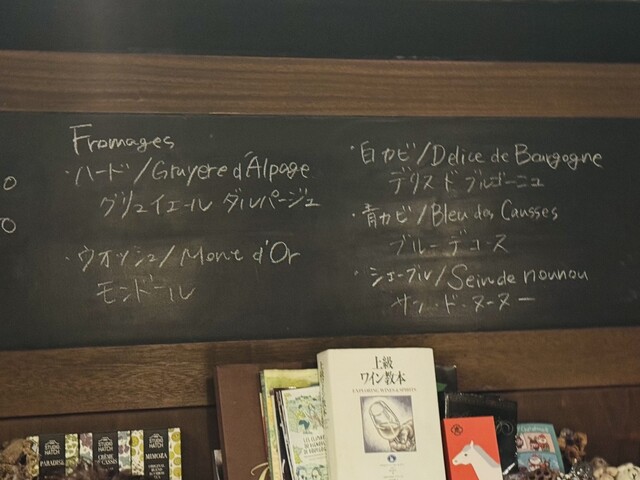 Fromages
・ハード/Gruyere d'Alpage
グリュイエール ダルパージュ
・ウオッシュ/Mont d'Or
モンドール
・白カビ/Délice de Bourgogne
デリス ド ブルゴーニュ
・青カビ/Bleu des Causses
ブルー デ コース
・シェーブル/Sein de nounou
サン・ド・ヌーヌー
上級
ワイン教本
EXPLORING WINES & SPIRITS
PARADISE
CRÈME DE CASSIS
MIMOZA